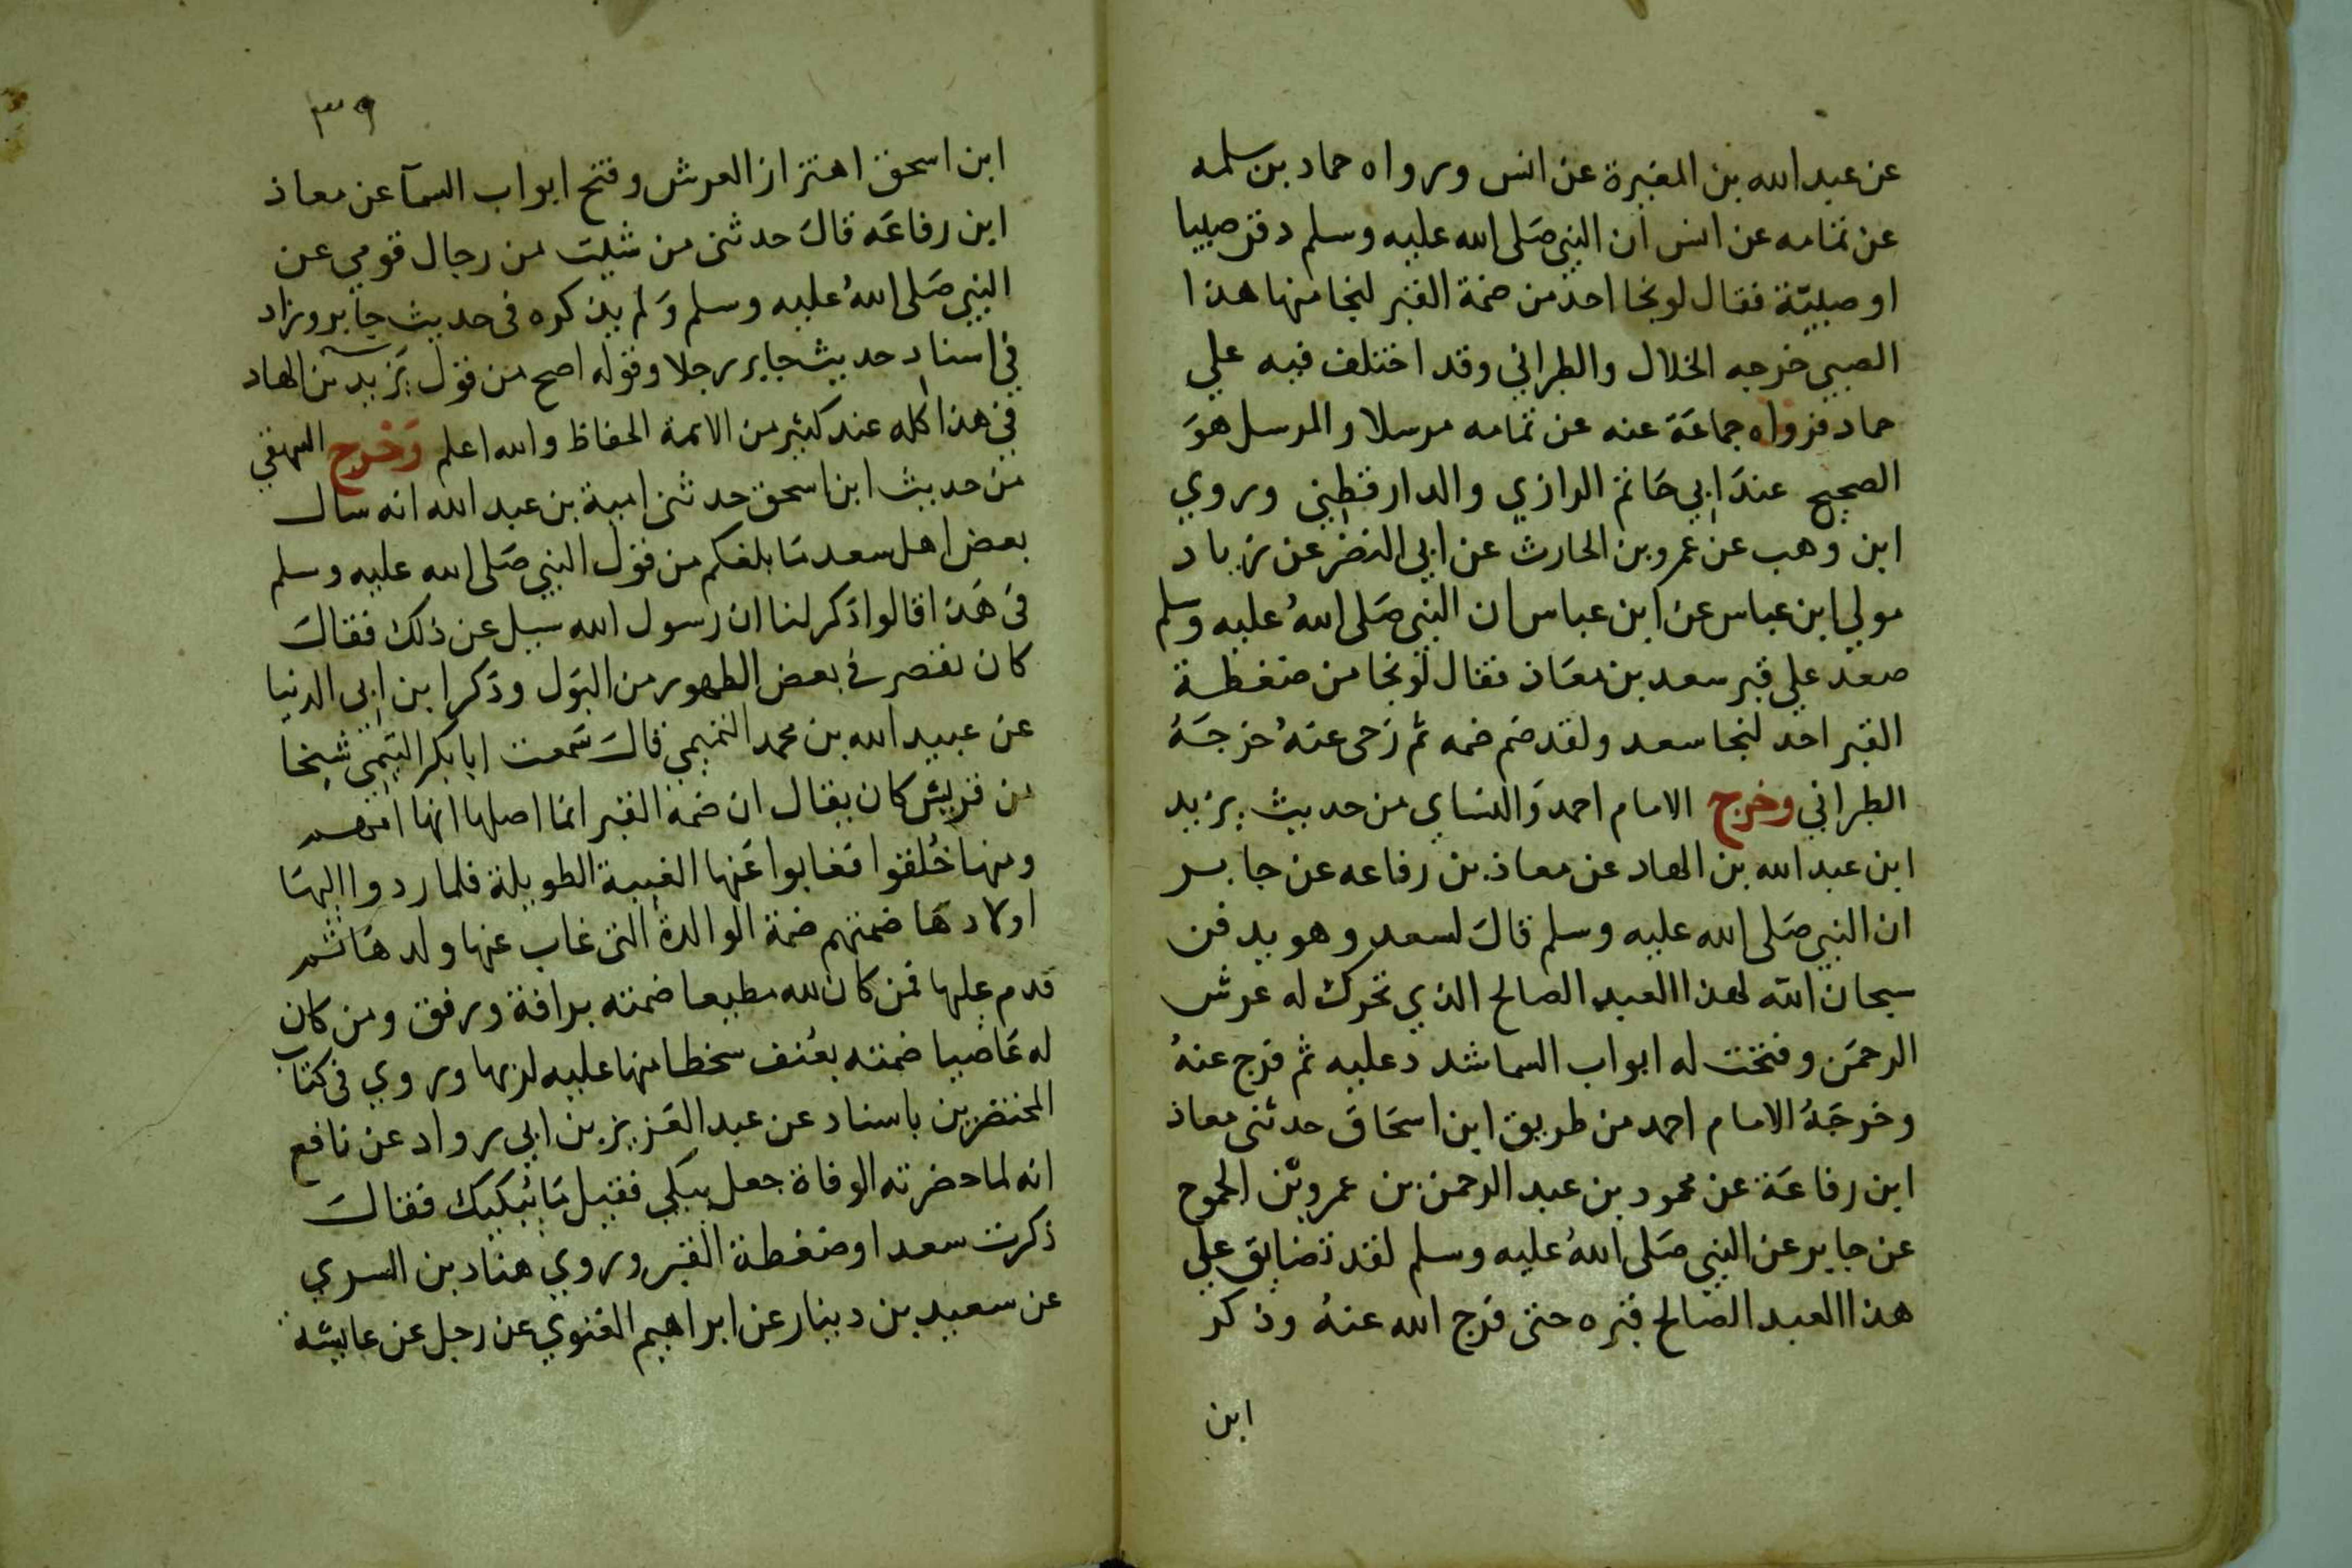 عن عبد الله بن المغيرة عن انس ورواه حماد بن سلمه
عن ثمامه عن انس ان النبي صلى الله عليه وسلم دفن صبيا
او صبيّة فقال لو نجا احد من ضمة القبر لنجا منها هذا
الصبي خرجه الخلال والطبراني وقد اختلف فيه علي
حماد فرواه جماعَة عنه عن ثمامه مرسلا والمرسل هوَ
الصحيح عندَ ابي حَاتم الرازي والدارقطني وروي
ابن وهب عن عمرو بن الحارث عن ابي النضر عن زياد
مولي ابن عباس عن ابن عباس ان النبي صَلى اللهُ عليه وسلم
صعد علي قبر سعد بن معَاذ فقال لو نجا من ضغطة
القبر احد لنجا سعد ولقد ضم ضمه ثم رَخى عنهُ خرجَهُ
الطبراني وخرج الامام احمد وَالنساي من حديث يزيد
ابن عبد الله بن الهاد عن معاذ بن رفاعه عن جابر
ان النبي صَلى الله عليه وسلم قالَ لسعد وهو يدفن
سبحان الله لهذا العبد الصالح الذي تحرك له عرش
الرحمَن وفتحت له ابواب السما شدد عليه ثم فرج عنهُ
وخرجَهُ الامام احمد من طريق ابن اسحَاقَ حدثني معاذ
ابن رفاعَة عن محمود بن عبد الرحمن بن عمرو بن الجموح
عن جابر عن النبي صَلى اللهُ عليه وسلم لقد تضايق علي
هذا العبد الصالح قبره حتى فرج الله عنهُ وذكر
ابن
٣٩
ابن اسحق اهتزاز العرش وفتح ابواب السمآ عن معاذ
ابن رفاعَه قالَ حدثني من شيت من رجال قومي عن
النبي صَلى اللهُ عليه وسلم وَلم يذكره فى حديث جابر وزاد
في اسناد حديث جابر رجلا وقوله اصح من قول يَزيد بن الهاد
في هذا كله عند كثير من الايمة الحفاظ والله اعلم وَخرج البيهقي
من حديث ابن اسحق حدثني امية بن عبد الله انه سال
بعض اهل سعد مَا بلغكم من قول النبي صَلى الله عليه وسلم
في هَذا قالوا ذكر لنا ان رسول الله سيل عن ذلك فقالَ
كان يقصر في بعض الطهور من البَول وذكر ابن ابي الدنيا
عن عبيد الله بن محمد التميمي قالَ سَمعت ابا بكر التيمي شيخا
من قريش كان يقال ان ضمة القبر انما اصلها انها امهم
ومنها خُلقوا فغابوا عَنها الغيبة الطويلة فلما ردوا اليهَا
اولادهَا ضمتهم ضمة الوالدة التى غاب عنها ولدهَا ثم
قدم عليها فمن كان لله مطيعا ضمته برافة ورفق ومن كان
له عَاصيا ضمته بعُنف سخطا منها عليه لربها وروي فى كتاب
المحتضرين باسناد عن عبد العَزيز بن ابي رواد عن نافع
انه لما حضرته الوفاة جعل يبكي فقيل مَا يُبكيك فقالَ
ذكرت سعدا وضغطة القبر وروي هناد بن السري
عن سعيد بن دينار عن ابراهيم الغنوي عن رجل عن عايشه